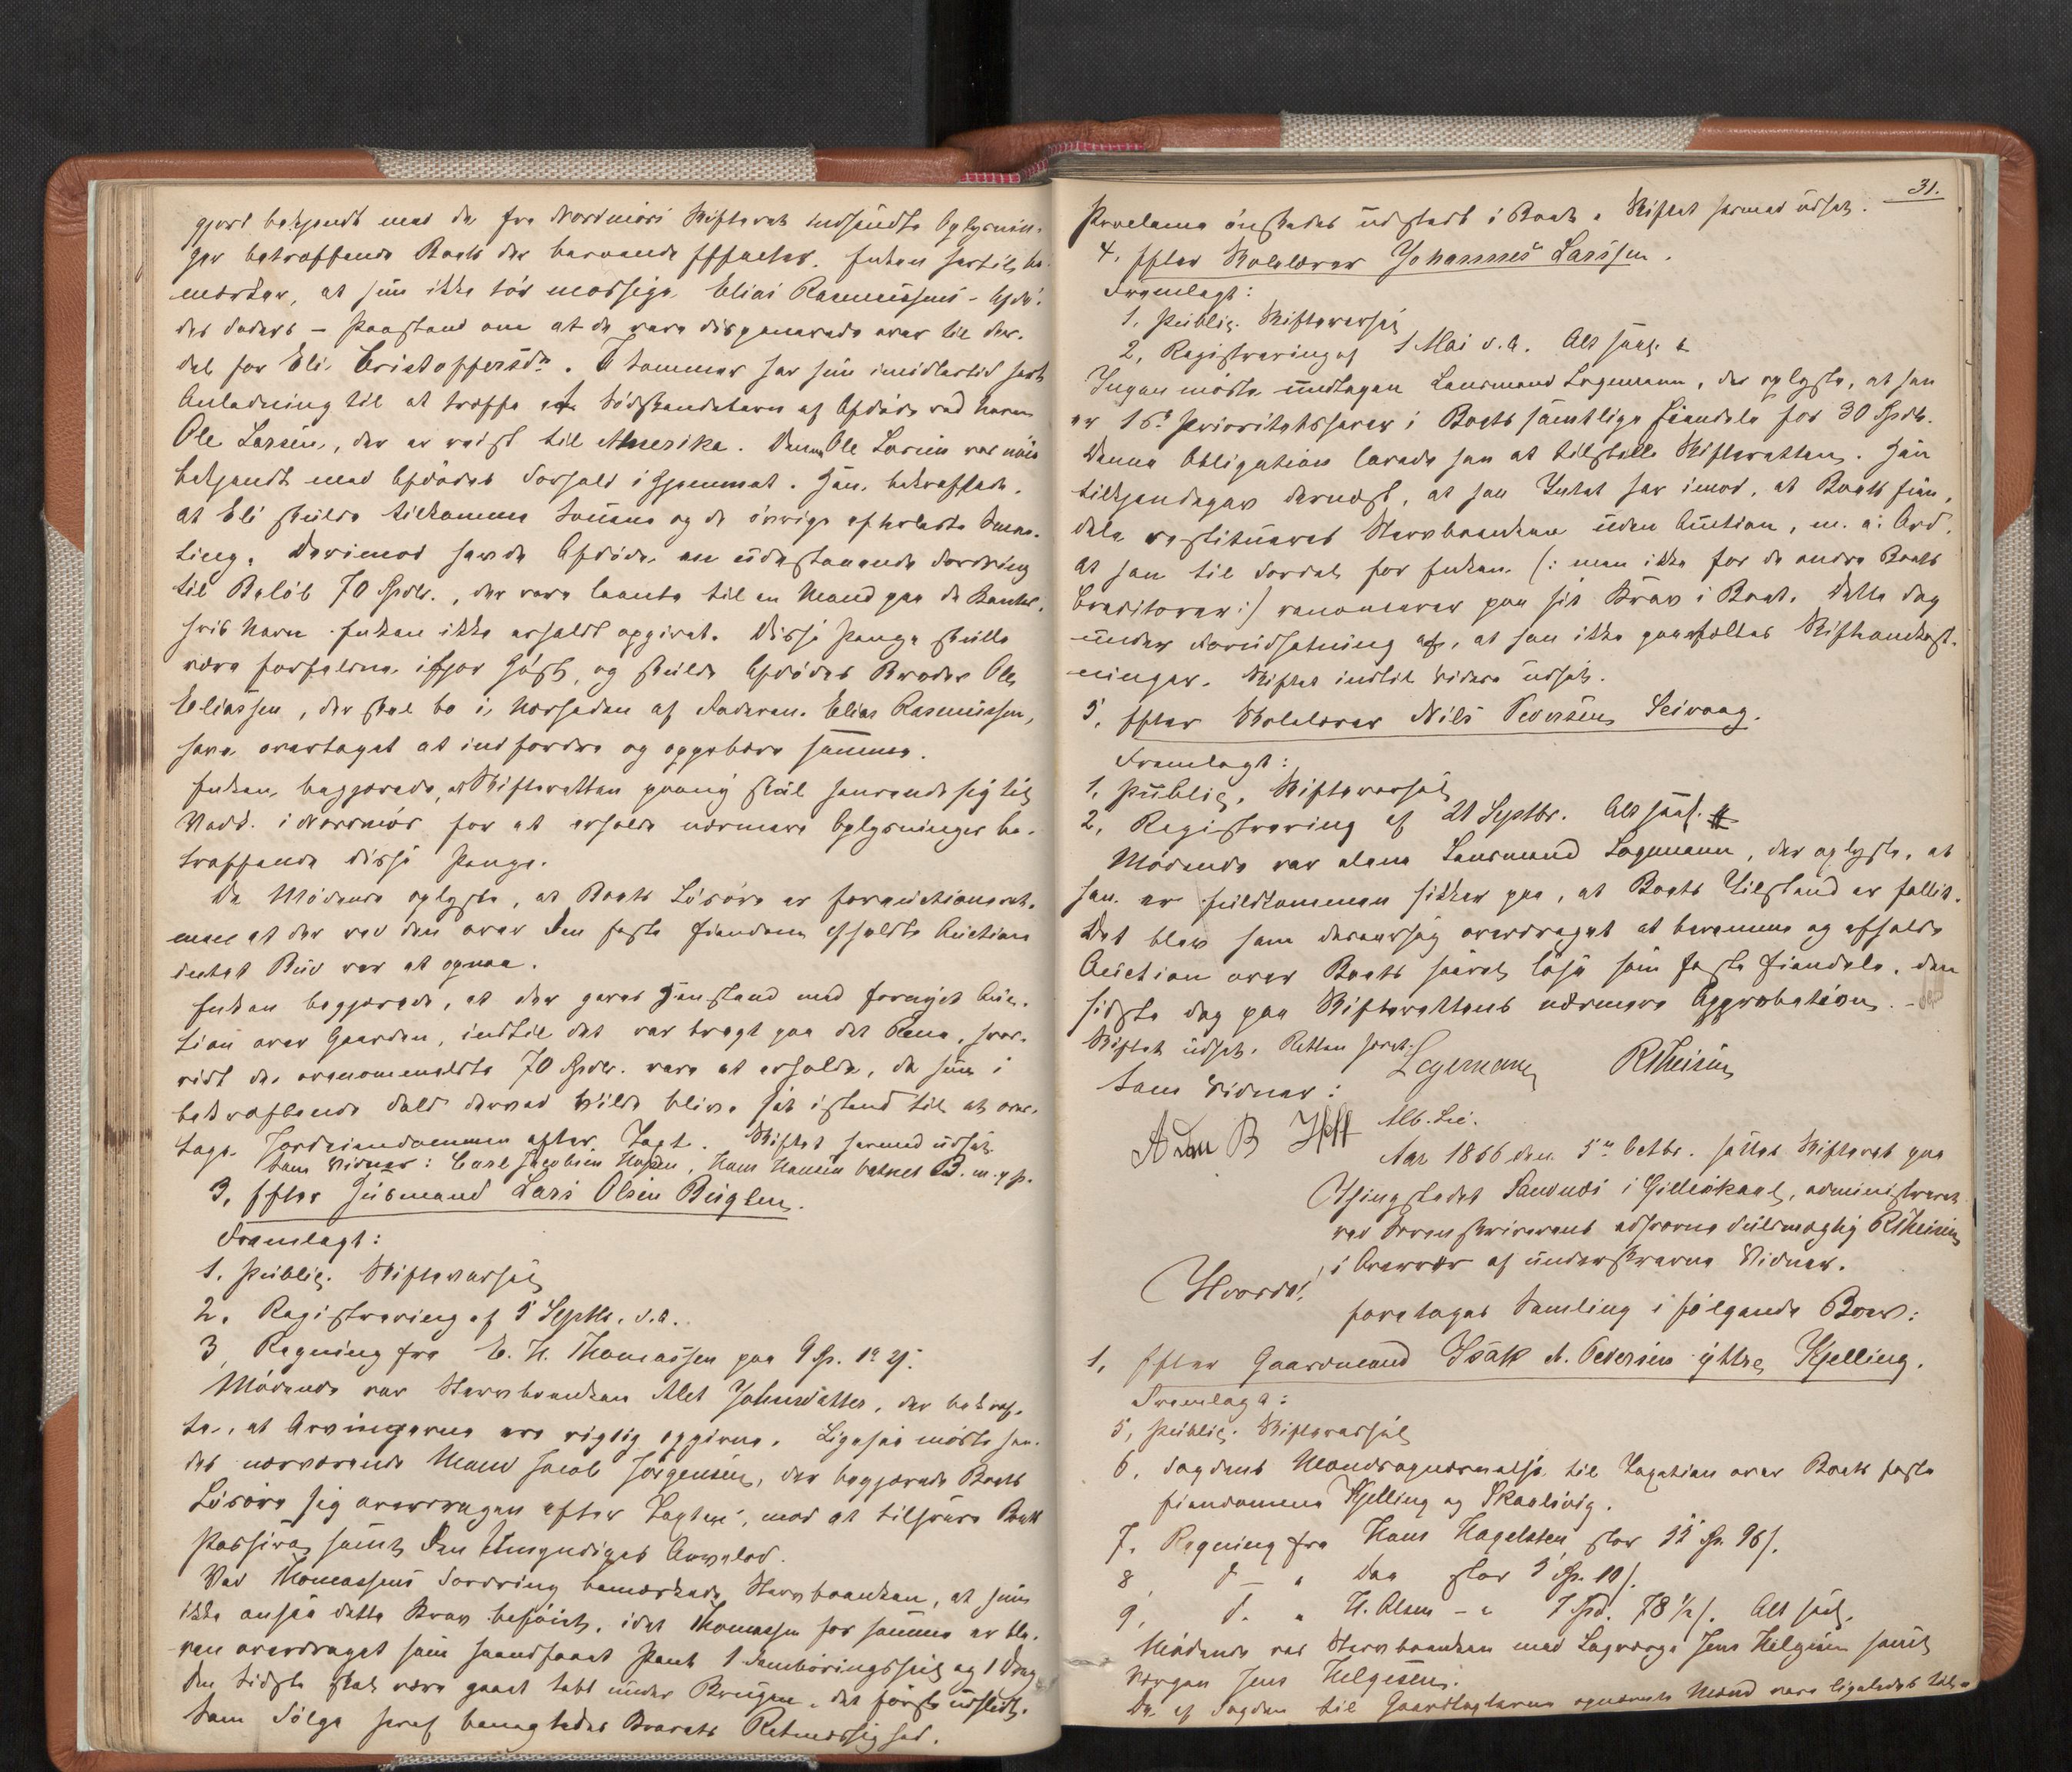 gjort bekjendt med de fra Nordmörs Skifteret indsendte Oplysnin-
ger betræffende Boets der beroende Effecter. Enken hertil be-
mærker, at hun ikke tör modsige Elias Rasmussens - Afdö-
des Faders - Paastand om at de vare disponerede over til For-
del for Eli Cristoffersdr. I Sommer har hun imidlertid havt
Anledning til at træffe et Södskendebarn af Afdöde ved Navn
Ole Larsen, der er reist til Amerika. Denne Ole Larsen var nöie
bekjendt med Afdödes Forhold i Hjemmet. Han bekræftede,
at Eli skulde tilkomme Sengene og de övrige efterladte Smaa-
ting. Derimod havde Afdöde en udestaaende Fordring
til Belöb 70 Spdlr., der vare laante til en Mand paa de Kanter,
hvis Navn Enken ikke erholdt opgivet. Disse Penge skulle
være forfaldne ifjor Höst, og skulde Afdödes Broder Ole
Eliassen, der skal bo i Nærheden af Faderen Elias Rasmussen,
have overtaget at indfordre og oppebære samme.
Enken begjærede, at Skifteretten paany skul henvende sig til
Vedk. i Nordmör for at erholde nærmere Oplysninger be-
træffende disse Penge.
De Mödende oplyste, at Boets Lösöre er forauctioneret,
men at der ved den over den faste Eiendom afholdte Auction
intet Bud var at opnaa.
Enken begjærede, at der gaves Henstand med fornyet Auc-
tion over Gaarden, indtil det var bragt paa det Rene, hvor-
vidt de ovenommeldte 70 Spdlr. vare at erholde, da hun i
bekræftende Fald derved vilde blive sat istand til at over-
tage Jordeiendommen efter Taxt. Skiftet hermed udsat.
Som Vidner: Carl Jacobsen Hopen, Hans Hansen m. p. P.
3, Efter Husmand Lars Olsen Buglen.
Fremlagt:
1. Public. Skiftevarsel
2. Registrering af 5 Septbr. d.A.
3, Regning fra C. H. Thomassen paa 9 Sp. 1° 2 s.
Mödende var Stervboenken Alet Johnsdatter, der bekræf-
te, at Arvingerne ere rigtig opgivne. Ligesaa mödte hen-
des nærværende Mand Jacob Jörgensen, der begjærede Boets
Lösöre sig overdragen efter Taxten, mod at tilsvare Boets
Passiva samt den Umyndiges Arvelod.
Ved Thomassens Fordring bemærkede Stervboenken, at hun
ikke ansaa dette Krav beföiet, idet Thomassen for samme er ble-
ven overdraget som haandfaaet Pant 1 Famböringsseil og 1 Dreg
Den sidste skal være gaaet tabt under Brugen, det förste udslidt.
Som Fölge heraf benegtedes Kravets Retmæssighed.
31.
Proclama önskedes udstedt i Boet. Skiftet hermed udsat.
4, Efter Skolelærer Johannes Larssen.
Fremlagt:
1, Public. Skiftevarsel
2, Registrering af 1 Mai d.A. Alt saal.
Ingen mödte undtagen Lensmand Lagemann, der oplyste, at han
er 1ste Prioritetshaver i Boets samtlige Eiendele for 30 Spdlr.
Denne Obligation lovede han at tilstille Skifteretten. Han
tilkjendegav dernæst, at han Intet har imod, at Boets Eien-
dele restitueres Stervboenken uden Auction, m. a. Ord.
at han til Fordel for Enken (: men ikke for de andre Boets
Creditorer :) renoncerer paa sit Krav i Boet. Dette dog
under Forudsætning af, at han ikke paafaldtes Skifteomkost-
ninger. Skiftet indtil videre udsat.
5, Efter Skolelærer Nils Pedersen Seivaag.
Fremlagt:
1, Public. Skiftevarsel
2, Registrering af 21 Septbr. Alt saal.
Mödende var alene Lensmand Lagemann, der oplyste, at
han er fuldkommen sikker paa, at Boets Tilstand er fallit.
Det blev ham derover overdraget at beramme og afholde
Auction over Boets saavel löse som faste Eiendele, den
sidste dog paa Skifterettens nærmere Approbation. -
Skiftet udsat. Retten hævet.
Lagemann RTheisen
Som Vidner:
Alb. Lie.
Aar 1866 den 5te Octbr. sattes Skifteret paa
Thingstedet Sandnæs i Gilleskaal, administreret
ved Sorenskriverens edsvorne Fuldmægtig RTheisen
i Overvær af underskrevne Vidner.
Hvorda!
foretoges Samling i fölgende Boer:
1, Efter Gaardmand Isak A. Pedersen yttre Kjelling.
Fremlagt:
5, Public. Skiftevarsel
6, Fogdens Mandsopnævnelse til Taxation over Boets faste
Eiendomme Kjelling og Skaalsvig.
7, Regning fra Hans Hagelsten stor 11 Sp. 96 s.
8, d - " Daa stor 5 Sp. 10 s.
9, d. " H. Olsen - " 7 Spd. 78 1/2 s. Alt saal.
Mödende var Stervboenken med Lagværge Jens Helgesen samt
Værgen Jens Helgesen.
De af Fogden til Gaardtaxtens opnævnte Mænd vare ligeledes til-